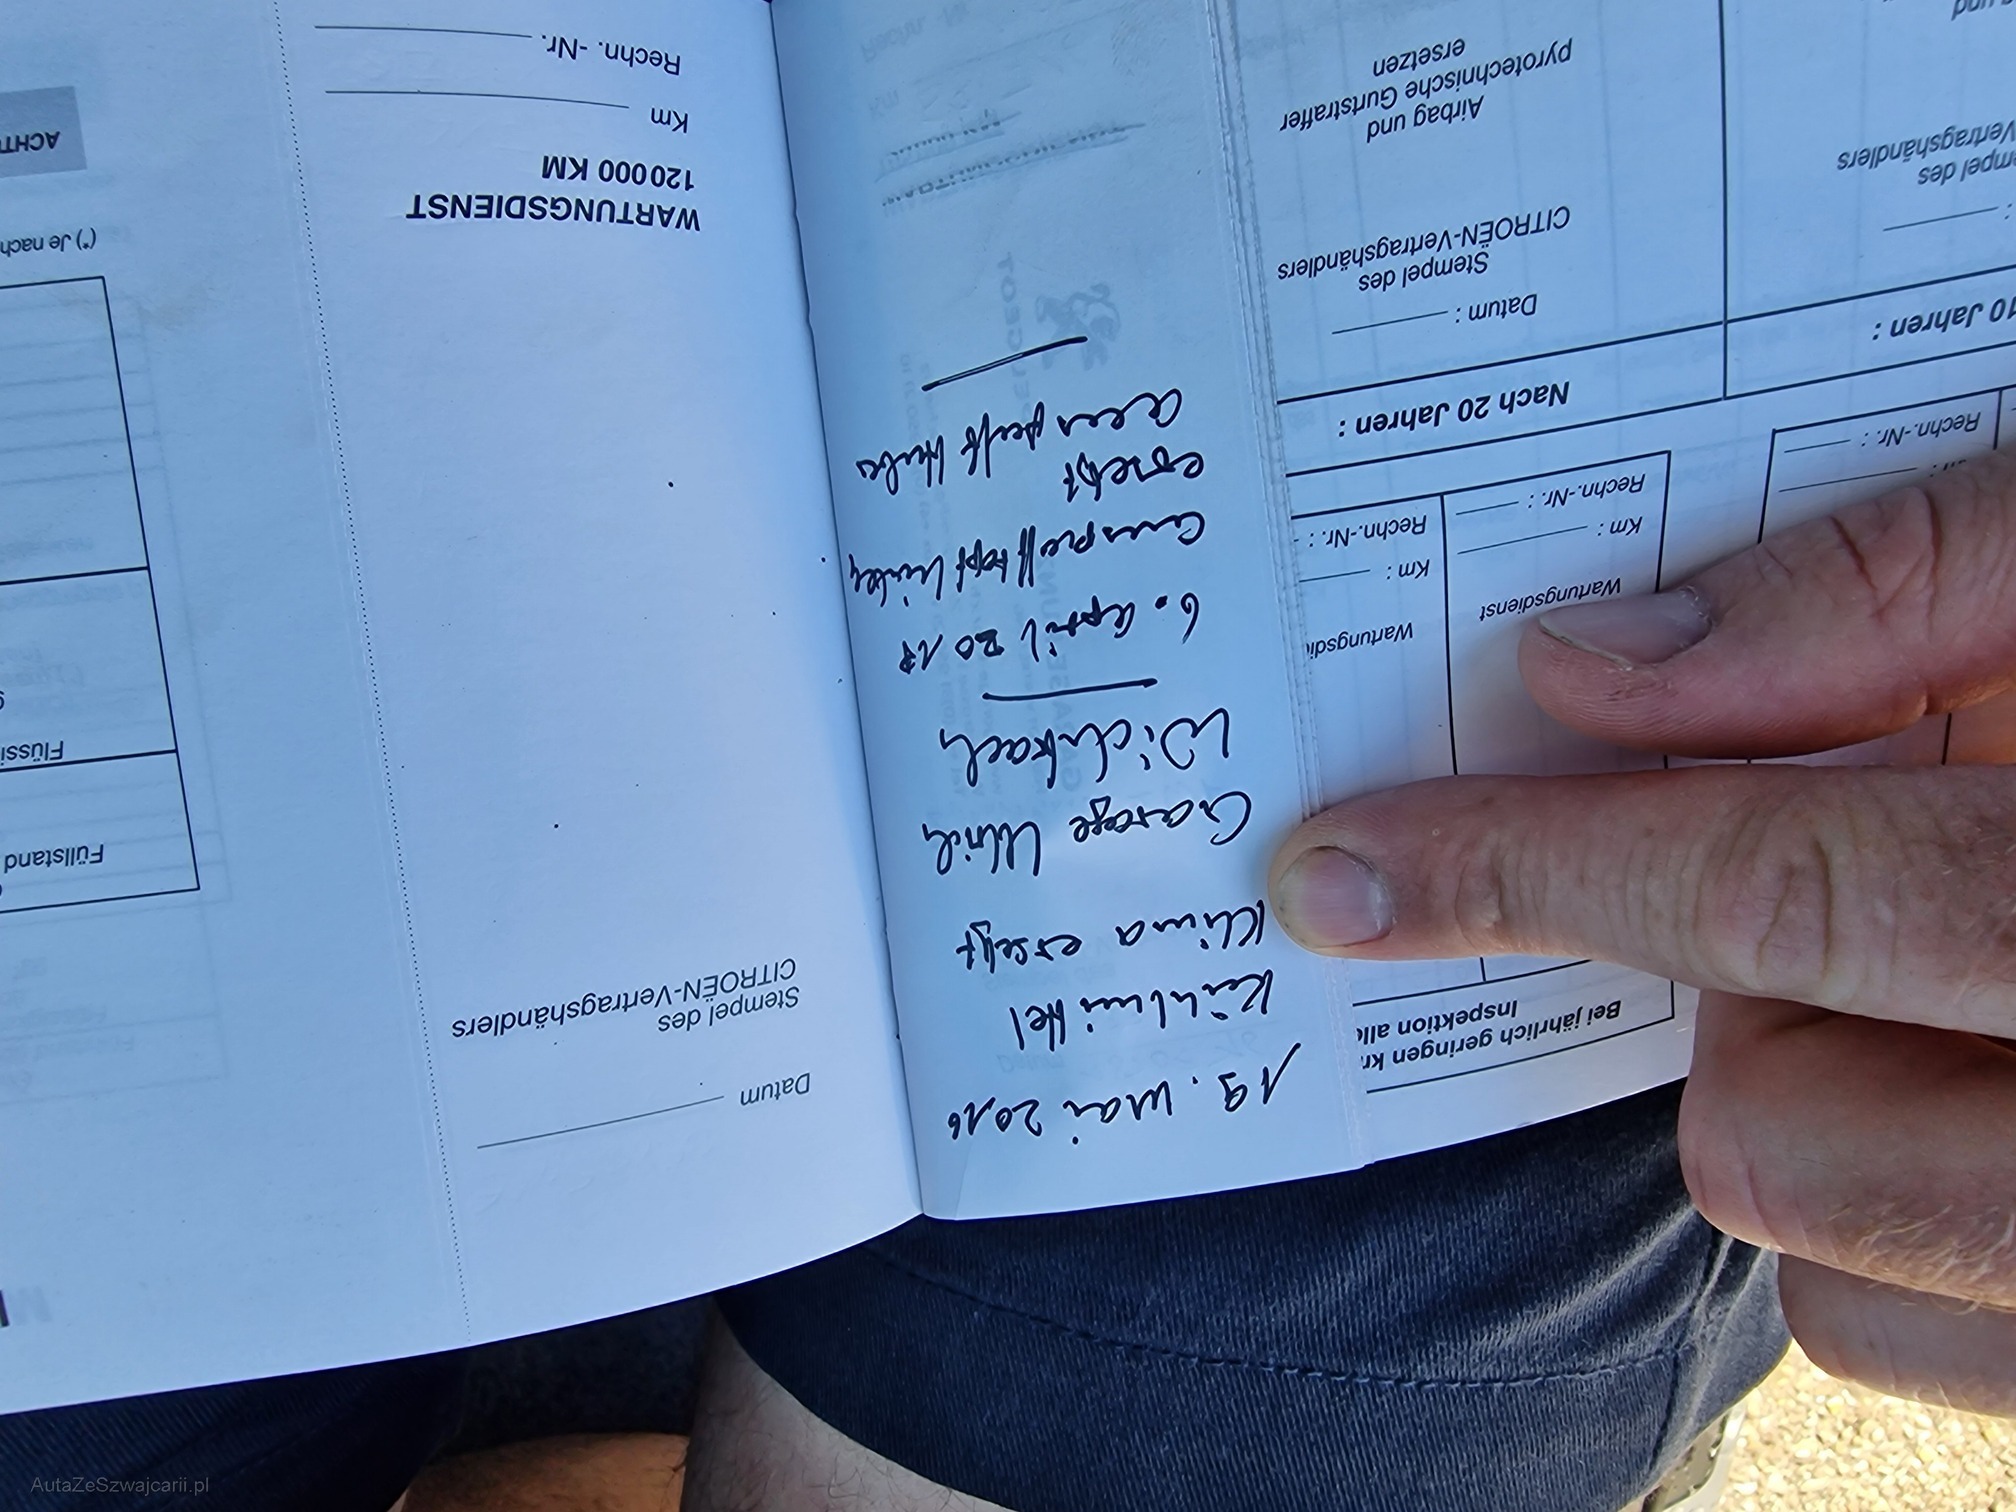 Rechn. -Nr.
Km
120 000 KM
WARTUNGSDIENST
ACHTU
(*) Je nach
Flüssi
Füllstand
Stempel des
CITROËN-Vertragshändlers
Datum
19. Mai 2016
Kühlmittel
Klima ersetzt
Garage Ulrich
Wichtrach
6. April 2017
Auspufftopf hinten
ersetzt
Auspuff
Airbag und
pyrotechnische Gurtstraffer
ersetzen
Stempel des
CITROËN-Vertragshändlers
Datum :
Nach 20 Jahren :
g und
empel des
Vertragshändlers
10 Jahren :
Rechn.-Nr. :
Bei jährlich geringen
Inspektion
Wartungsdienst
Km :
Rechn.-Nr. :
Wartungsdi
Km :
Rechn.-Nr. :
AutaZeSzwajcarii.pl